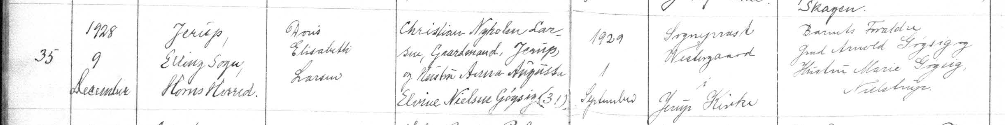 Skagen.
35
1928
9
December
Jerup,
Elling Sogn,
Horns Herred.
Doris
Elisabeth
Larsen
Christian Nypolen Lar-
sen, Gaardmand, Jerup,
og Hustru Anna Augusta
Elvine Nielsen Gøgsig (31).
1929
1
September
Sognepræst
Westergaard
i
Jerup Kirke
Barnets Forældre
Grd Arnold Gøgsig og
Hustru Marie Gøgsig,
Nielstrup.